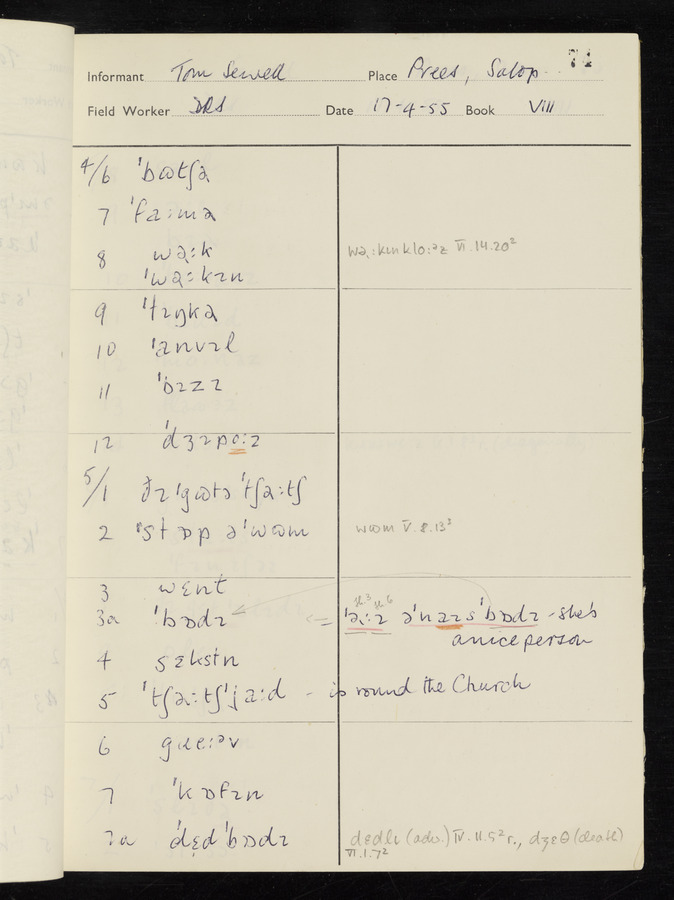 72
Informant Tom Sewell Place Prees, Salop
Field Worker DRS Date 17-4-55 Book VIII
4/6 ˈbɷtʃə
7 ˈfaːmə
8 wəːk wəːkɪnkloːᵊz VI.14.20²
ˈwəːkɪn
9 ˈtɪŋkə
10 ˈanvɪl
11 ˈɒɪzɪ
12 ˈdʒɪpoːɪ
5/1 ðɪ ˈgɷtə ˈtʃəːtʃ
2 ˈstɒp əˈwɷm wɷm V.2.13³
3 wɛnt
3a ˈbɒdɪ <= ˈəːɪ əˈnaɪsˈbɒdɪ - she's
a nice person
4 sɛkstn
5 ˈtʃəːtʃˈjaːd - is round the Church
6 gɹeːᵊv
7 ˈkɒfɪn
7a ˈdɛdˈbɒdɪ dɛdlɪ (adv.) IV.11.5²r., dʒɛθ (death)
VI.1.7²